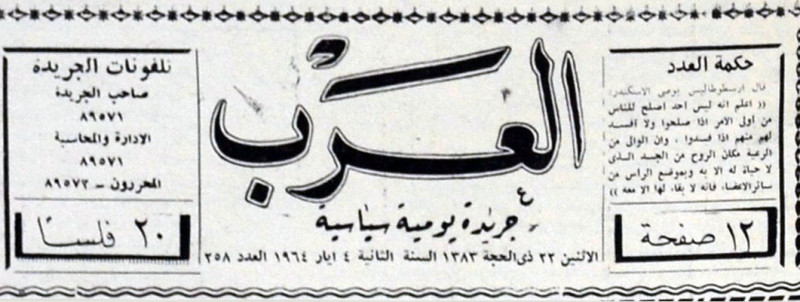 حكمة العدد
قال ارسطوطاليس يوصي الاسكندر
(( اعلم انه ليس احد اصلح للناس
من اولى الامر اذا صلحوا ولا افسد
لهم منهم اذا فسدوا ، وان الوالى من
الرعية مكان الروح من الجسد الذى
لا حياة له الا به وبموضع الرأس من
سائر الاعضاء فانه لا بقاء لها الا معه ))
١٢ صفحة
العرب
جريدة يومية سياسية
الاثنين ٢٢ ذى الحجة ١٣٨٣ السنة الثانية ٤ ايار ١٩٦٤ العدد ٢٥٨
تلفونات الجريدة
صاحب الجريدة
٨٩٥٧١
الادارة والمحاسبة
٨٩٥٧١
المحررون - ٨٩٥٧٢
٢٠ فلسا